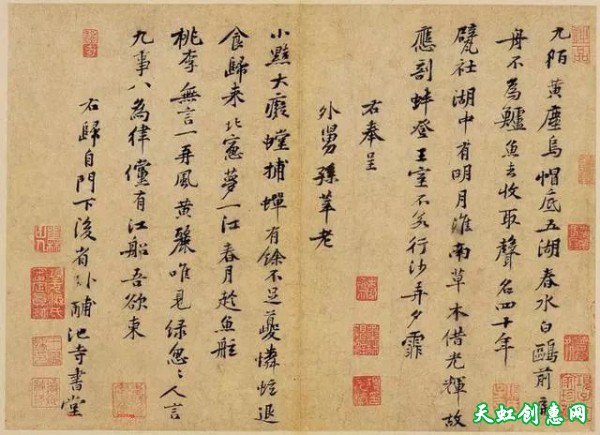 九陌黃塵烏帽底五湖春水白鷗前扁
舟不為鱸魚去收取聲名四十年
甓社湖中有明月淮南草木借光輝故
應剖蚌登王室不若行沙弄夕霏
右奉呈
外舅孫莘老
小黠大癡螳捕蟬有餘不足夔憐蚿退
食歸來北窻夢一江春月趁魚船
桃李無言一再風黃鸝唯見綠怱〻人言
九事八為律儻有江船吾欲東
右歸自門下後省卧酺池寺書堂
天虹创惠网